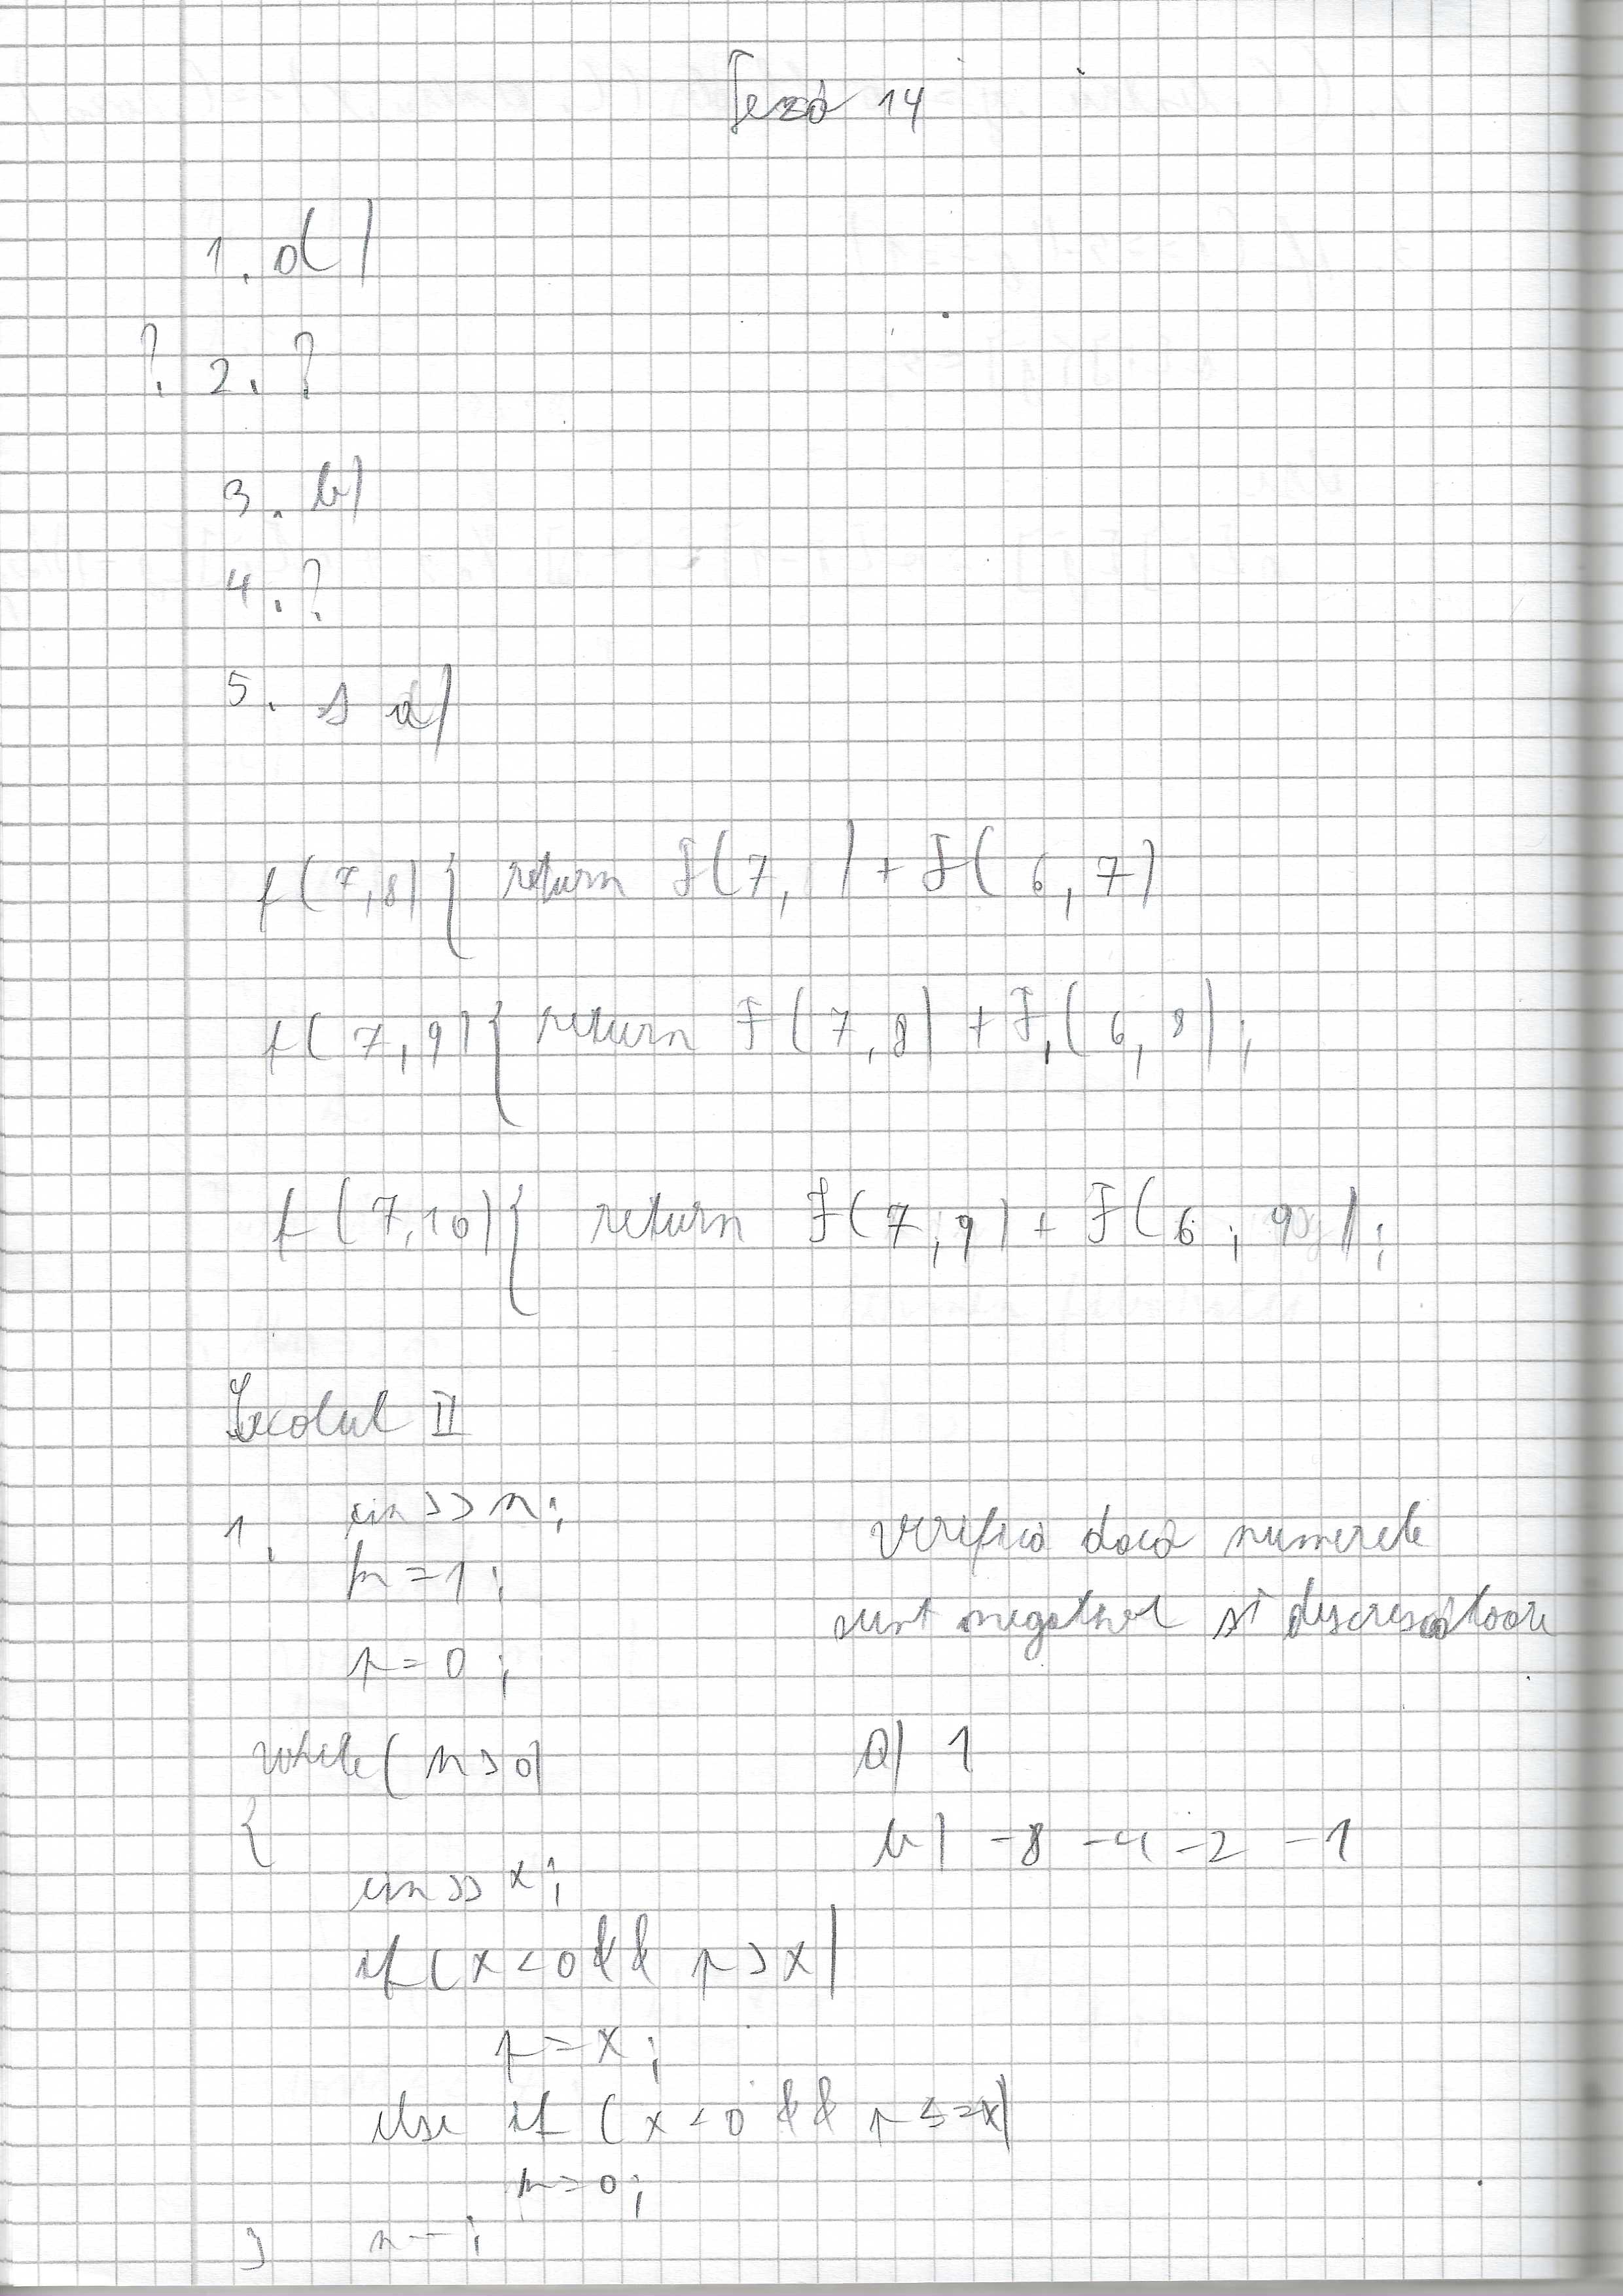 Teză 14
1. d)
? 2. ?
3. b)
4. ?
5. a)
f(7,8) { return f(7, ) + f(6, 7)
f(7,9) { return f(7,8) + f(6,8);
f(7,10) { return f(7,9) + f(6, 9);
II
1. cin>>n;
m=1;
r=0;
while(n>0)
{
cin>>x;
if(x<0 && r>x)
r=x;
else if (x<0 && r<=x)
m=0;
} n--;
verifică dacă numerele
sunt negative și descrescătoare
a) 1
b) -8 -4 -2 -1